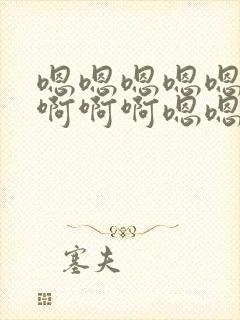 嗯嗯嗯嗯嗯
啊啊啊嗯嗯
塞夫